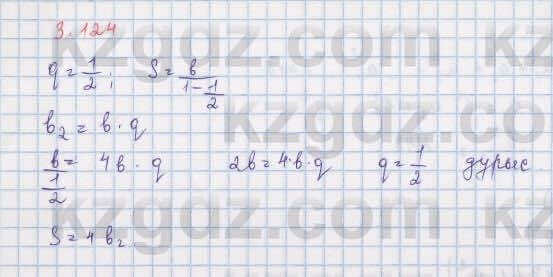 3.124
q = 1/2; S = b/(1 - 1/2)
b₂ = b · q
b/(1/2) = 4b · q 2b = 4·b·q q = 1/2 дұрыс
S = 4b₂.
kzgdz.com
kzgdz.com
kzgdz.com
kzgdz.com